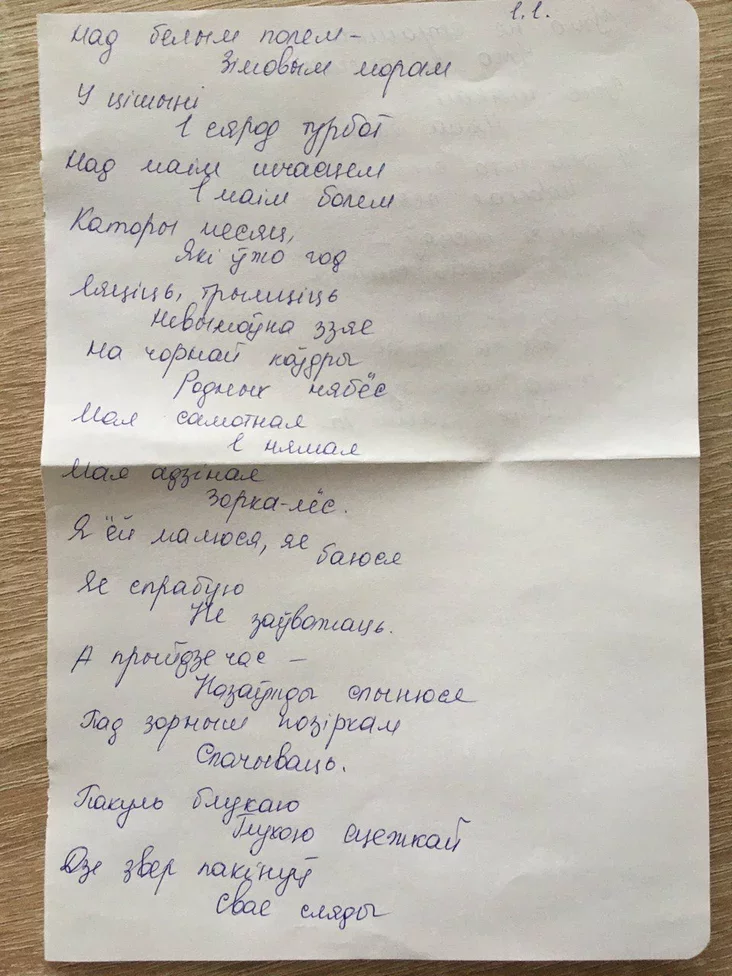 1.1.
Над белым полем –
Зімовым морам
У цішыні
І сярод турбот
Над маім шчасцем
І маім болем
Каторы месяц,
Які ўжо год
Ляціць, трымціць
Невымоўна ззяе
На чорнай коўдры
Родных нябёс
Мая самотная
І нямая
Мая адзіная
Зорка-лёс.
Я ёй малюся, яе
баюся
Яе спрабую
Не заўважаць.
А прыйдзе час –
Назаўжды спынюся
Пад зорным позіркам
Спачываць.
Пакуль блукаю
Глухою сцежкай
Дзе звер пакінуў
Свае сляды